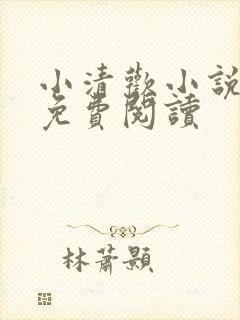 小清歡小說
免費閱讀
林蕭顥